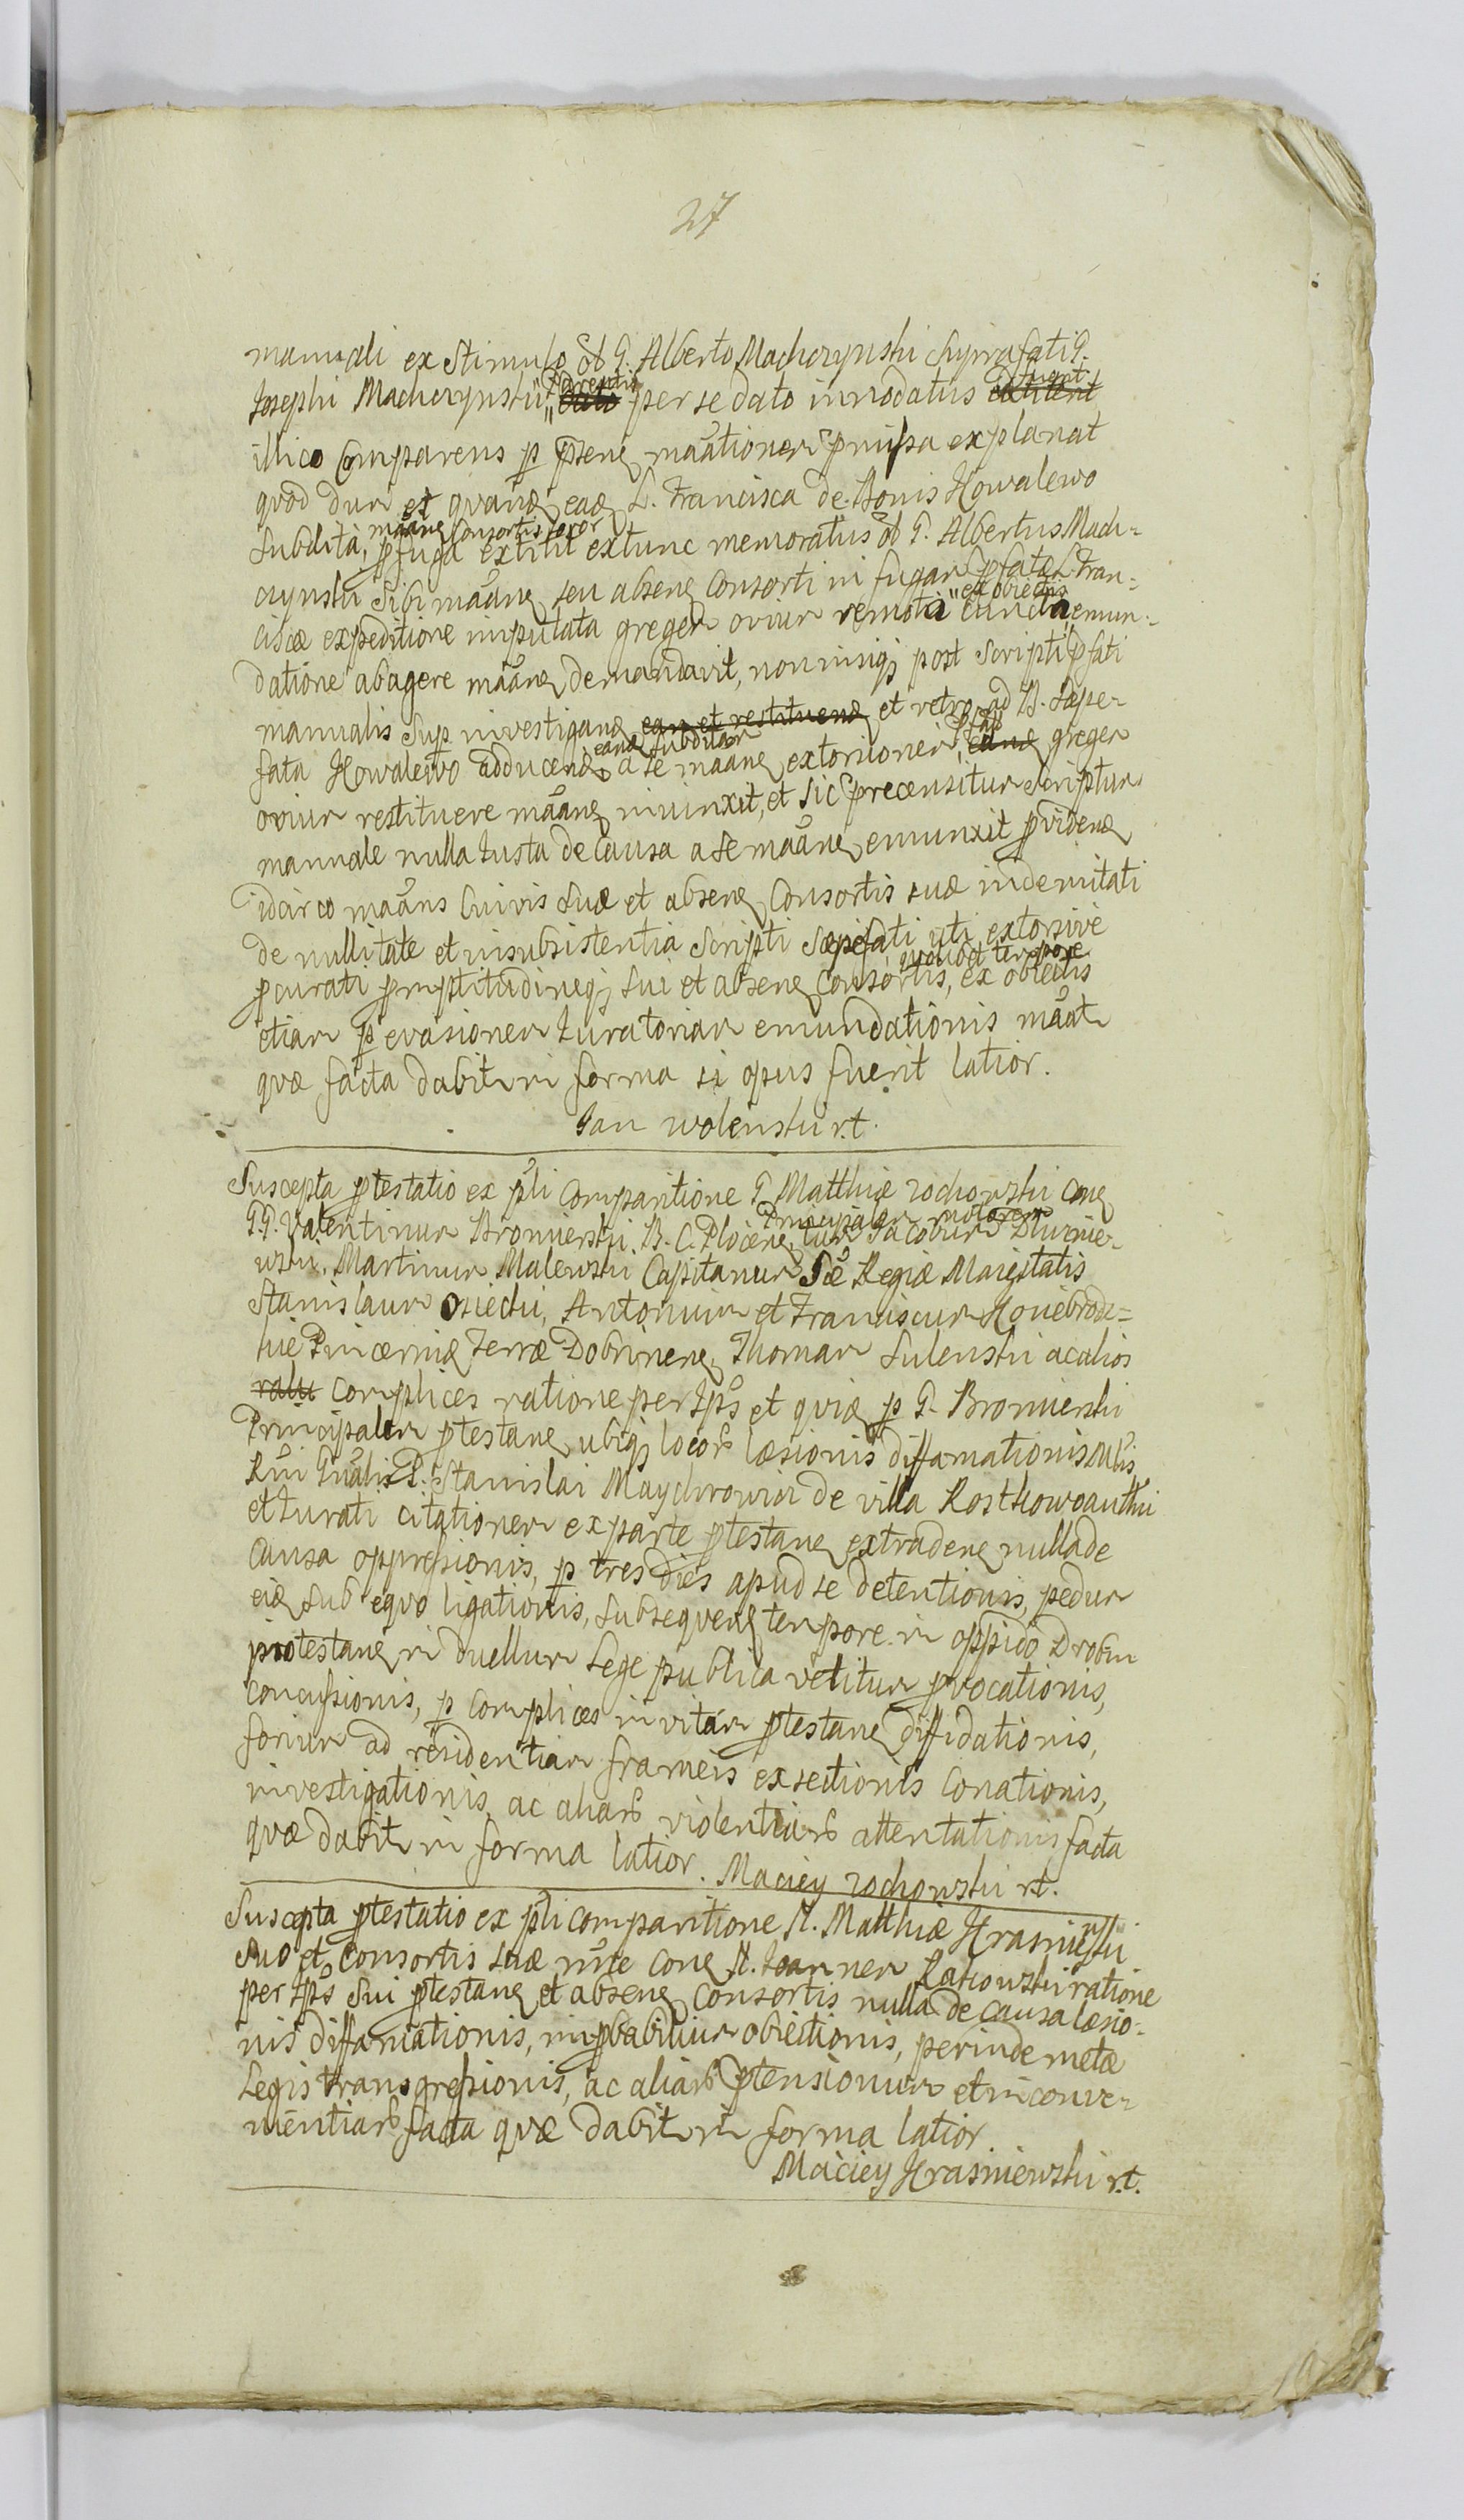 27
manuali ex Stimulo ab G. Alberto Machczynski Suprafati G.
Josephi Machczynski Parentis dato per se dato innodatus extiterit fuerit
illico Comparens p pñens mãnationem pmissa explanat
quod dum et quand ead L. Francisca de Bonis Kowalewo
Subdita, mãanens Consortis soror pfuga extitit extunc memoratus ab G. Albertus Mach=
czynski Sibi mãans seu absens Consorti in fugam pfatæ L. Fran=
ciscæ expeditione imputata gregem ovium remota ex obiectis cuncta emun=
datione abagere mãans demandavit, non nisiq post Scripti pfati
manualis Sup investigand eam et restituend et retro ad B. Sæpe
fata Kowalewo adducend eand Subditam a se mãans extorsionem, pfat eand gregem
ovium restituere mãans iniunxit, et sic precensitum Scriptum
manuale nulla Justa de Causa a se mãans emunxit pvidens
idcirco mãans Cuivis Suæ et absens Consortis suæ indemnitati
de nullitate et insubsistentia Scripti Sæpefati uti extorsive
pcurati pmptitudineq Sui et absens Consortis, quovis tempore ex obiectis
etiam p evasionem Juratoriam emundationis mãnat
quæ facta dabitur in forma si opus fuerit latior.
Jan Wolenski r.t.
Suscepta ptestatio ex pli Comparitione G. Matthiæ Zochowski Cone
G.G. Valentinum Bromierski B. C. Plocens Principalem tum Jacobum motorem Dluznie=
wski, Martinum Malewski Capitaneum Sæ Regiæ Maiestatis
Stanislaum Osiecki, Antonium et Franciscum Konebrodz=
kie Pincernid Terræ Dobrinens, Thomam Sulenski ac alios
ralu Complices ratione per Ipos et quid p G. Bromierski
Principalem ptestans ubiq locorum læsionis diffamationis Nlis
Rni Gnalis P. Stanislai Maychrowicz de villa Rostkowo authni
et Jurati citationem ex parte ptestans extradens nulla de
Causa oppressionis, p tres dies apud se detentionis, pedum
eid sub equo ligationis, subsequens tempore in oppido Drobin
protestans in duellum Lege publica vetitum pvocationis,
concussionis, p Complices in vitam ptestans diffidationis,
forium ad residentiam frameis exsectionis Conationis,
investigationis, ac aliarum violentiarum attentationis facta
quæ dabitur in forma latior. Maciey Zochowski r.t.
Suscepta ptestatio ex pli comparitione N. Matthiæ Krasniewski
Suo et Consortis suæ nõie cone N. Joannem Rakowski ratione
per Ipos Sui ptestans et absens Consortis nulla de causa læsio=
nis diffamationis, impbabilium obiectionis, perinde metæ
Legis transgressionis, ac aliarum ptensionum et inconve=
nientiarum facta quæ dabitur in forma latior.
Maciey Krasniewski r.t.